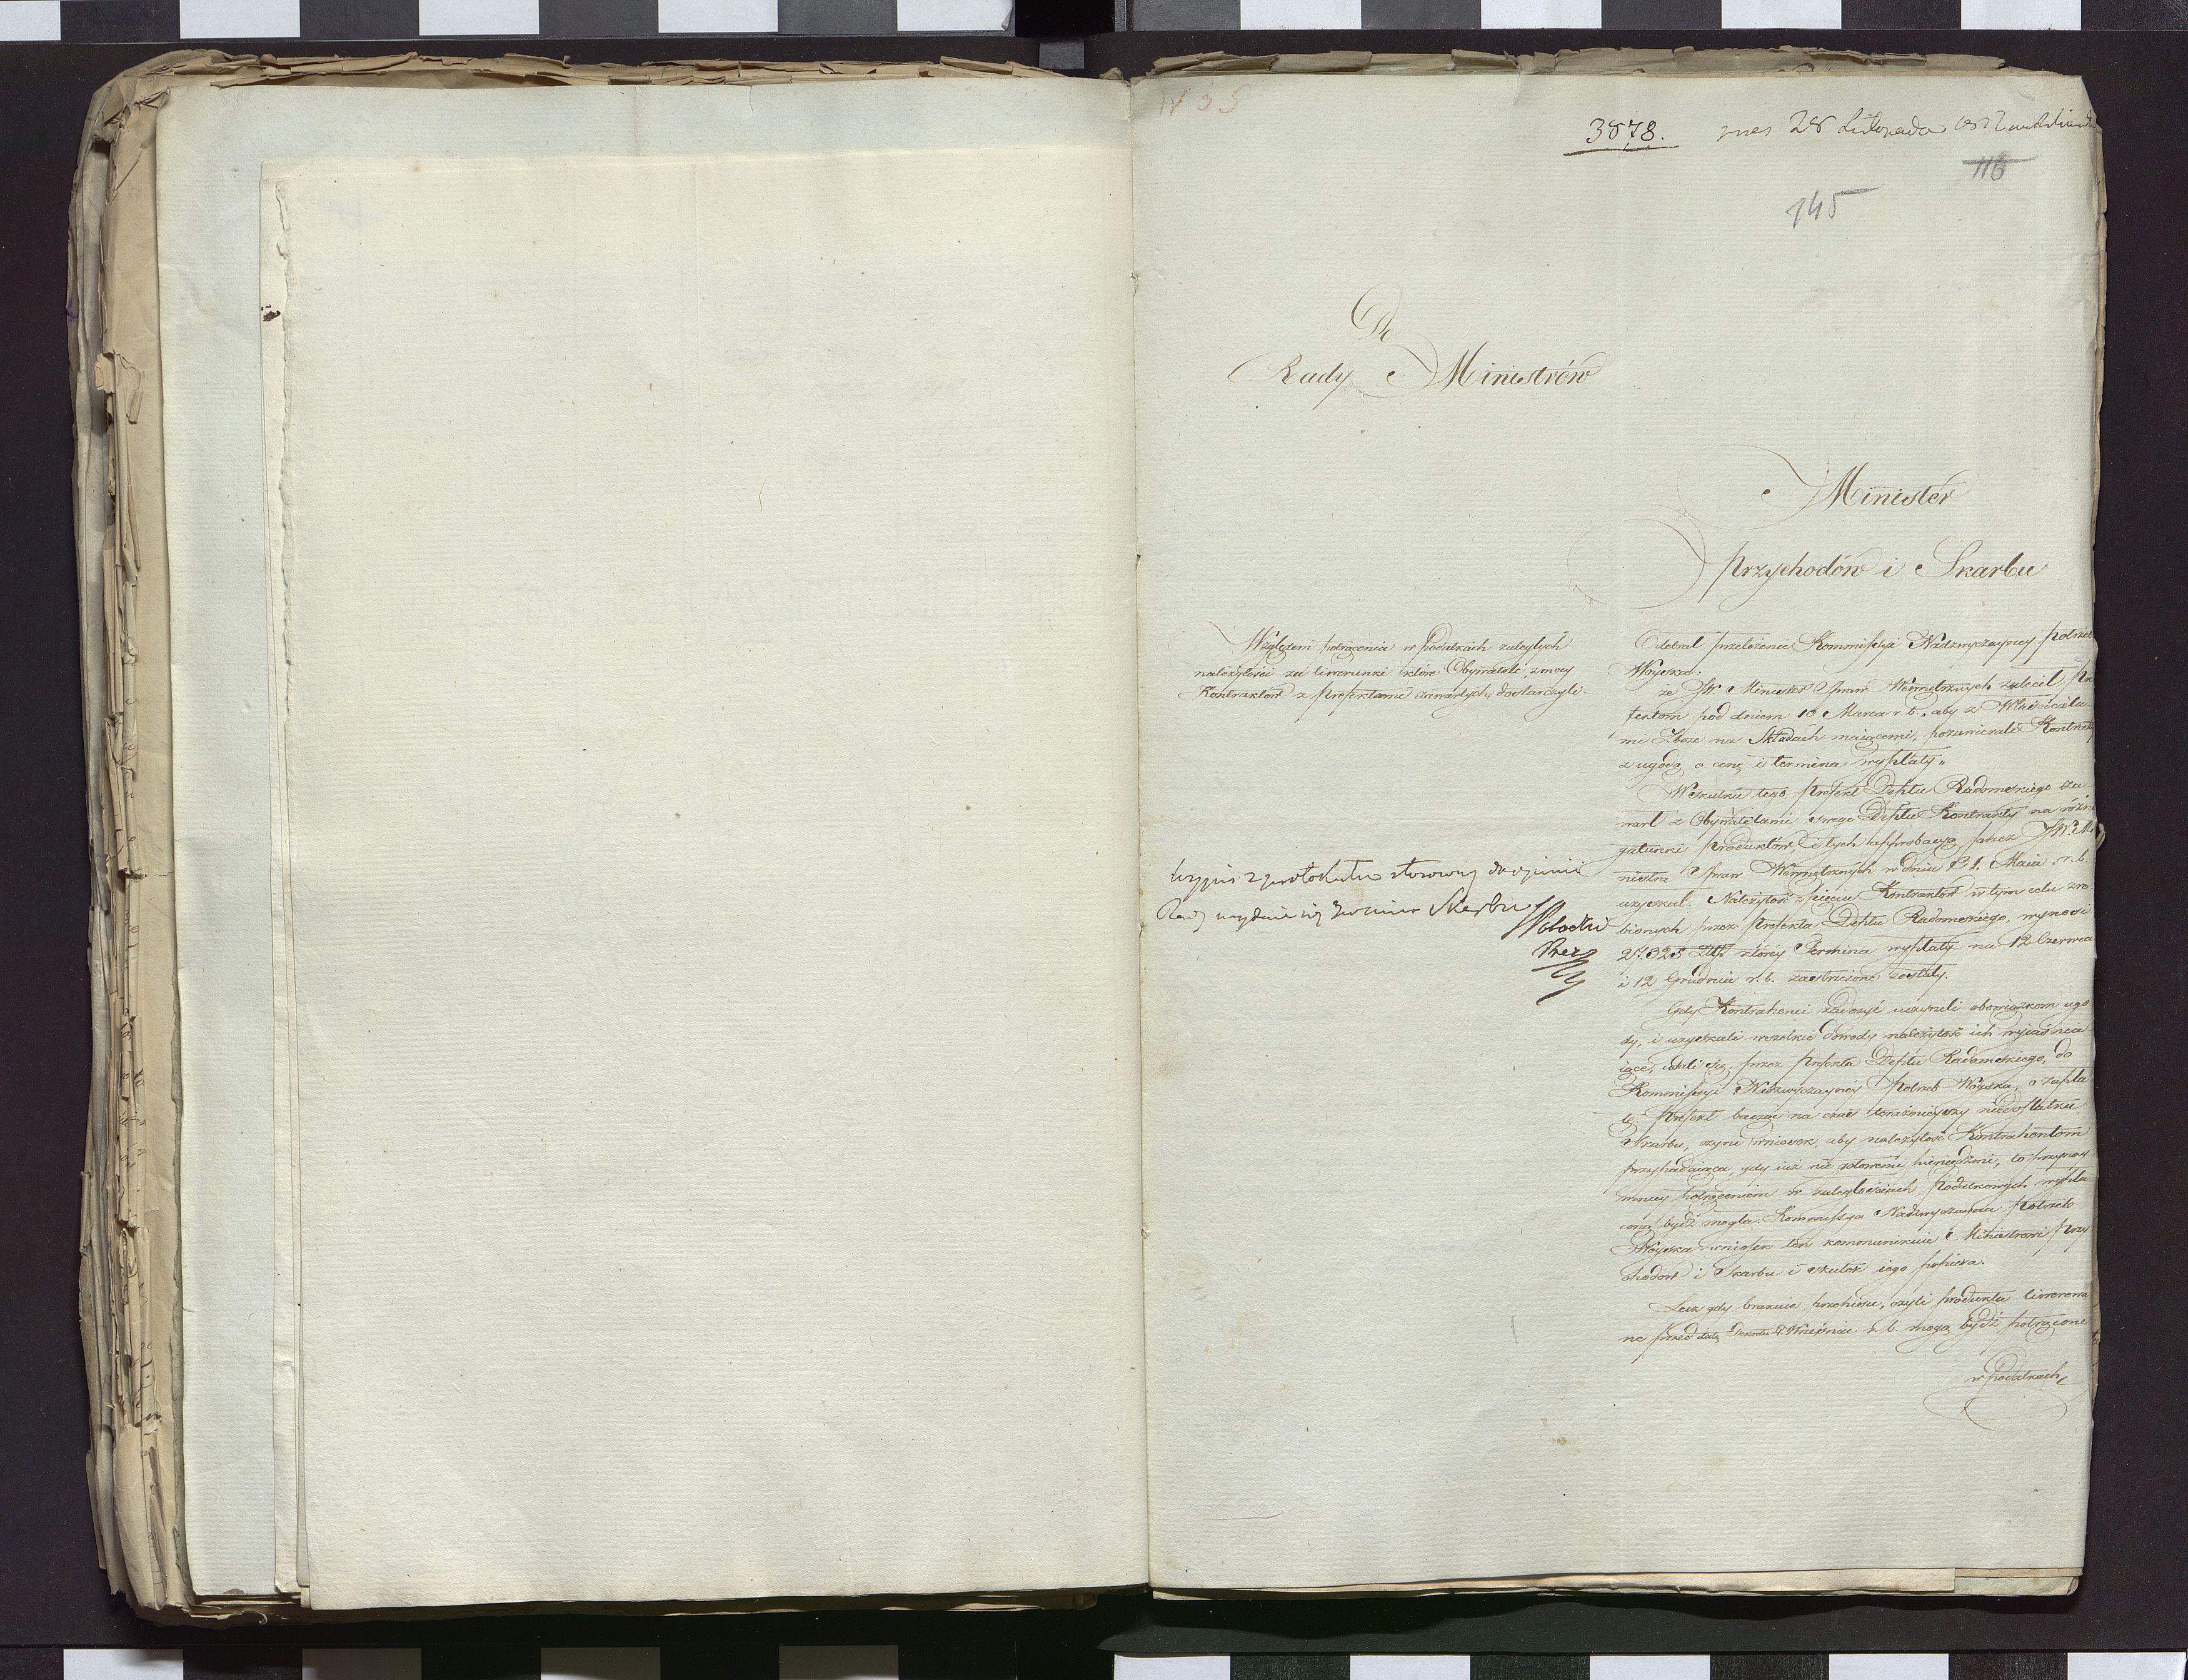 N 35
3878.
28 Listopada
116
145
Do
Rady Ministrów
Minister
Przychodów i Skarbu
Względem potrącenia w Podatkach zaległych
należytości za liwerunki które Obywatele z mocy
Kontraktów z Prefektami zawartych dostarczyli.
Wypis z protokułu stosowny do opinii
Rady Skarbu
Odebrał przełożenie Kommissyi Nadzwyczayney Potrzeb
Woyska.
że JW. Minister Spraw Wewnętrznych zalecił Pre
fektom pod dniem 10 Marca r. b. „aby z Właściciela
mi Zboże na Składach maiącemi, pozawierali Kontrakt
z ugodą o cenę i termina wypłaty„
Wskutku tego Prefekt Deptu Radomskiego za-
warł z Obywatelami swego Deptu Kontrakty na różne
gatunki Produktów i tych approbacyą przez JW. Mi
nistra Spraw Wewnętrznych w dniu 31. Maia r. b.
uzyskał. Należytość z pięciu Kontraktów w tym celu zro
bionych przez Prefekta Deptu Radomskiego, wynosi
27.325 Złł. którey Termina wypłaty na 12 Czerwca
i 12 Grudnia r. b. zastrzeżone zostały.
Gdy Kontrahenci zadosyć uczynili obowiązkom ugo
dy, i uzyskali wszelkie dowody należytość ich wyiaśnia
iące, udali się przez Prefekta Deptu Radomskiego, do
Kommissyi Nadzwyczayney Potrzeb Woyska, o zapła
tę. Prefekt bacząc na czas teraźnieyszy niedostatku
Skarbu, czyni wniosek, aby należytość Kontrahentom
przypadaiąca, gdy iuż nie gotowemi pieniędzmi, to przynay
mniey potrąceniem w zaległościach Podatkowych wypła
coną bydź mogła. Kommissya Nadzwyczayna Potrzeb
Woyska wniosek ten kommunikuie Ministrowi Przy
chodów i Skarbu i skutek iego popiera.
Lecz gdy brakuie przepisu, czyli produkta liwerowa
ne przed datą Dekretu 4. Września r. b. mogą bydź potrącone
w Podatkach,